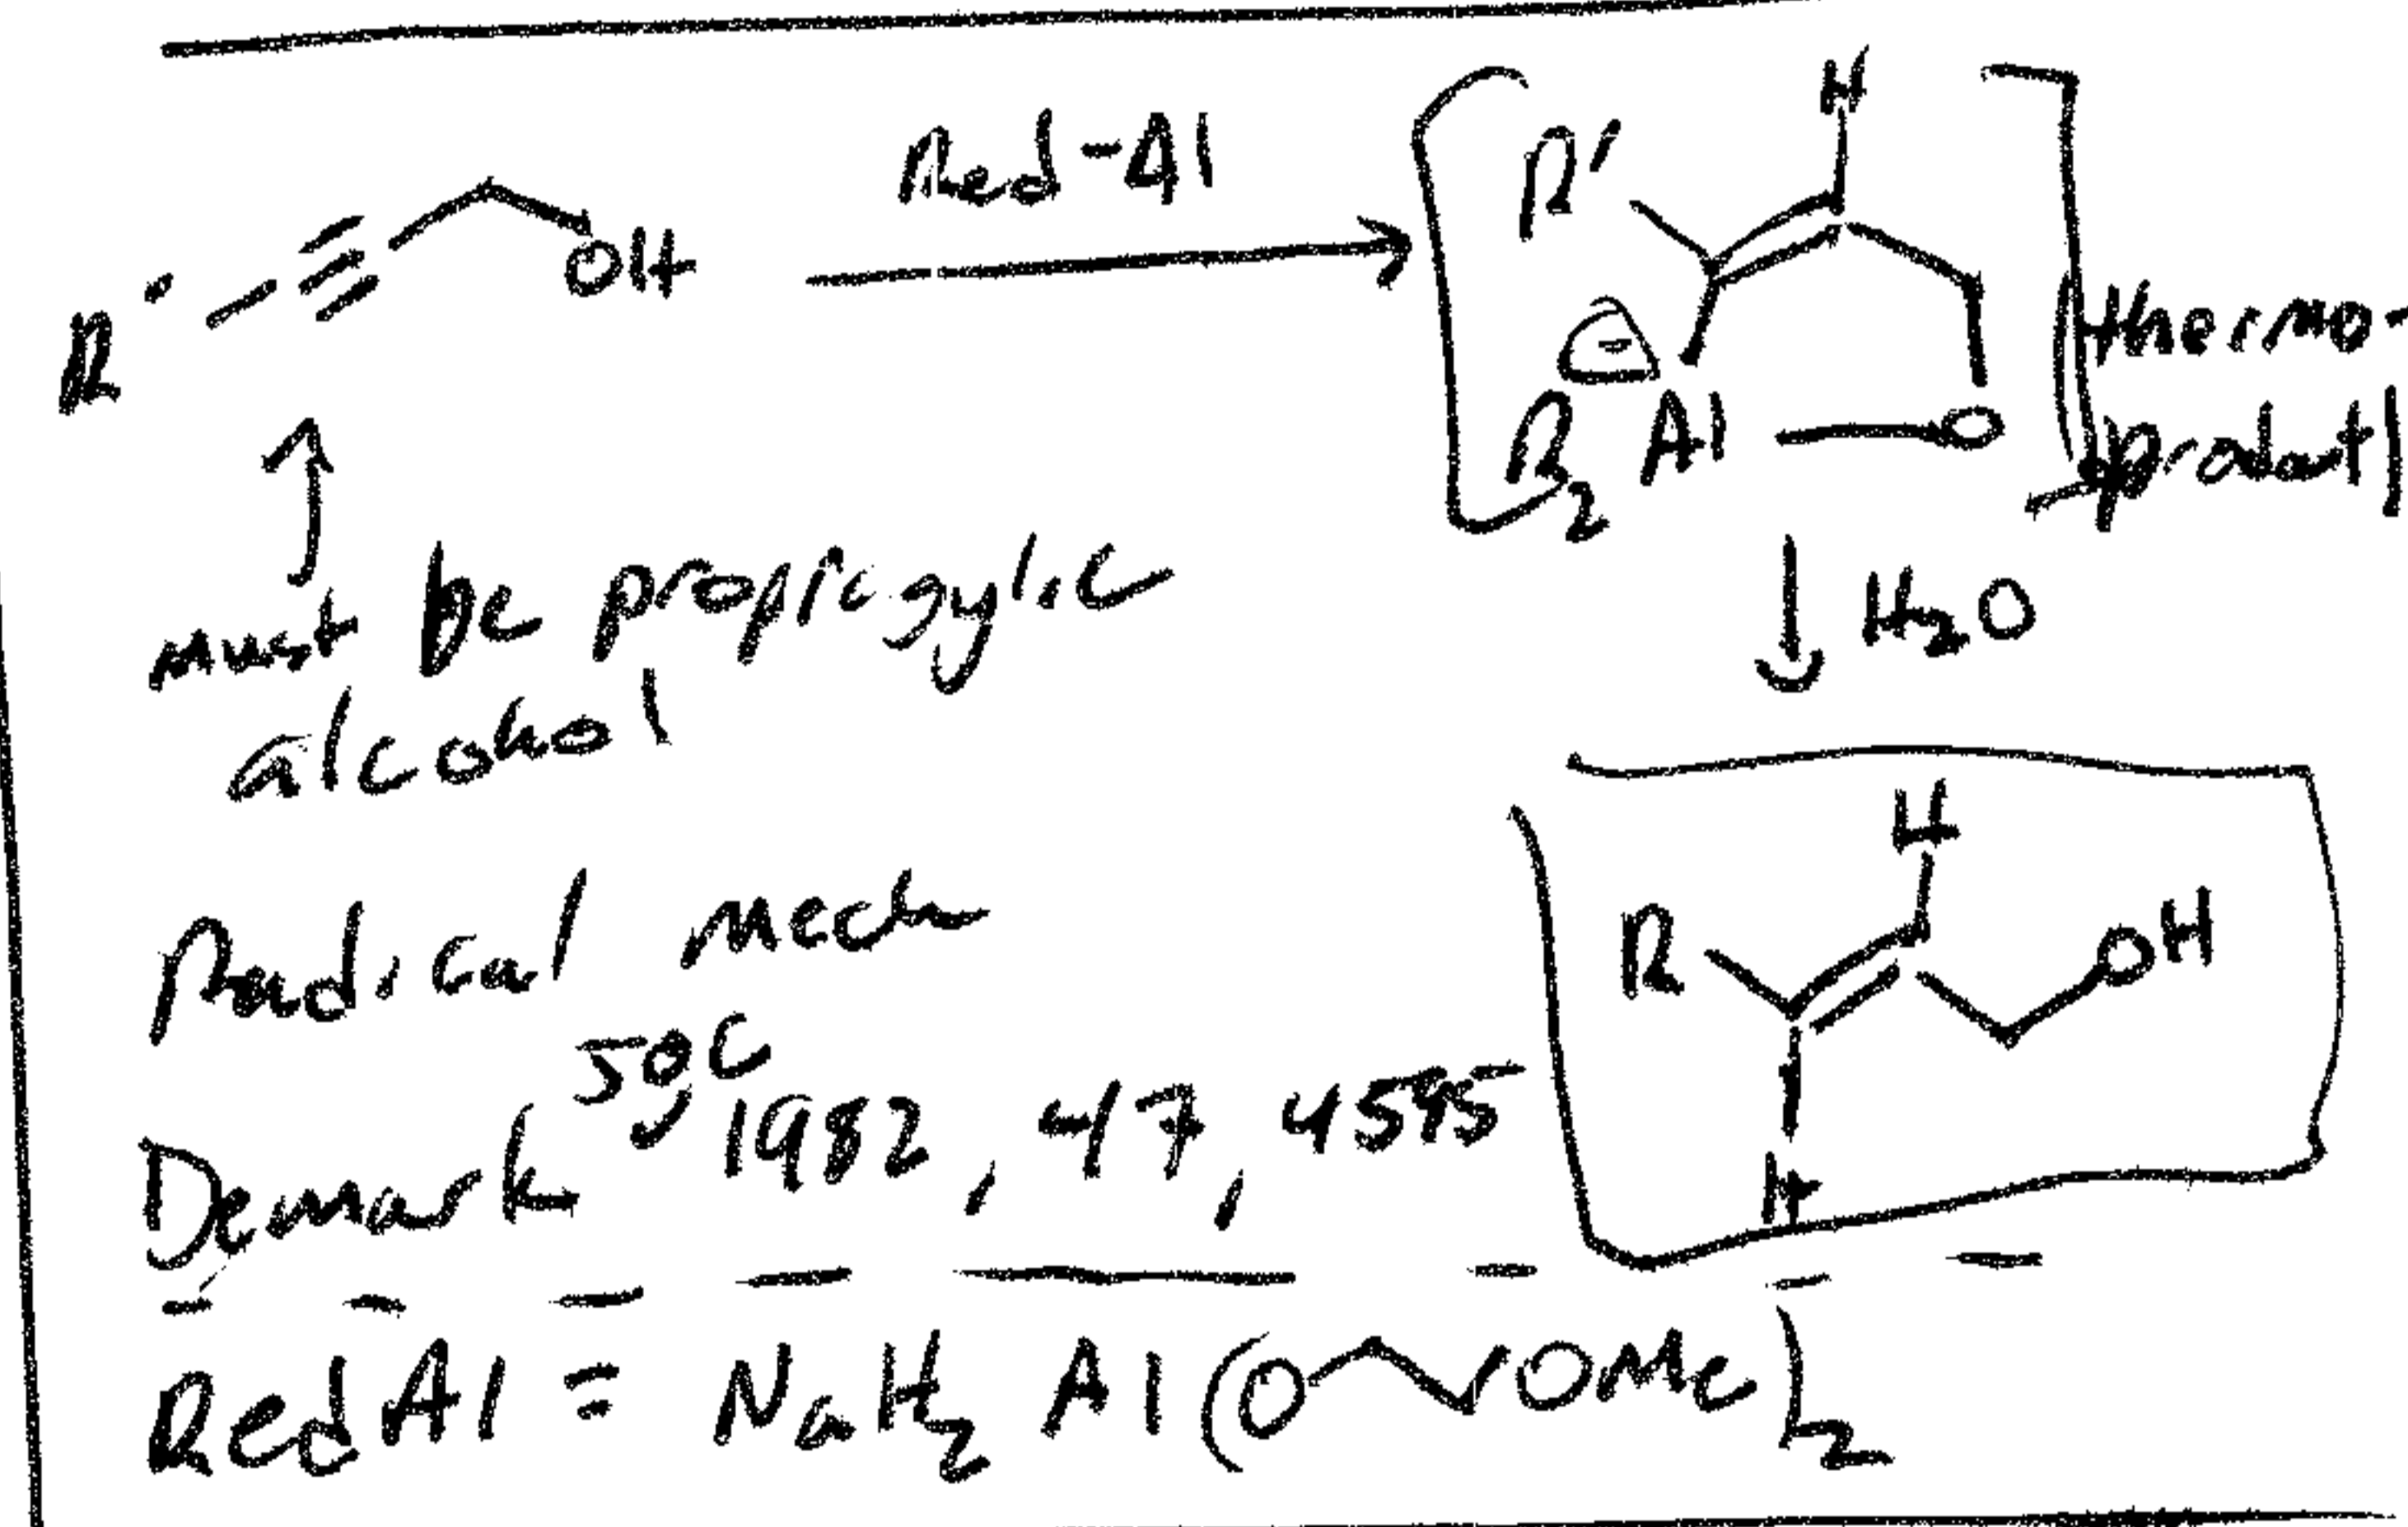 Red-Al
R' ≡ OH
R' H
⊖
R2 Al — O
(thermo-
product)
must be propargylic
alcohol
H2O
Radical mech
JOC
Demark 1982, 47, 4595
R H OH
H
RedAl = NaH2 Al(O OMe)2